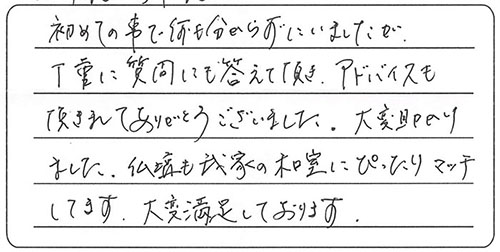 初めての事で何も分からずにいましたが、
丁重に質問にも答えて頂き、アドバイスも
頂きましてありがとうございました。大変助かり
ました。仏壇も我家の和室にぴったりマッチ
してます。大変満足しております。